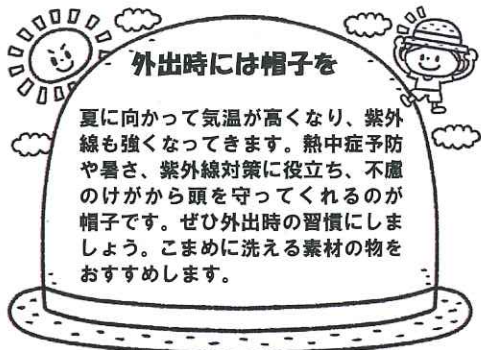 外出時には帽子を
夏に向かって気温が高くなり、紫外
線も強くなってきます。熱中症予防
や暑さ、紫外線対策に役立ち、不慮
のけがから頭を守ってくれるのが
帽子です。ぜひ外出時の習慣にしま
しょう。こまめに洗える素材の物を
おすすめします。